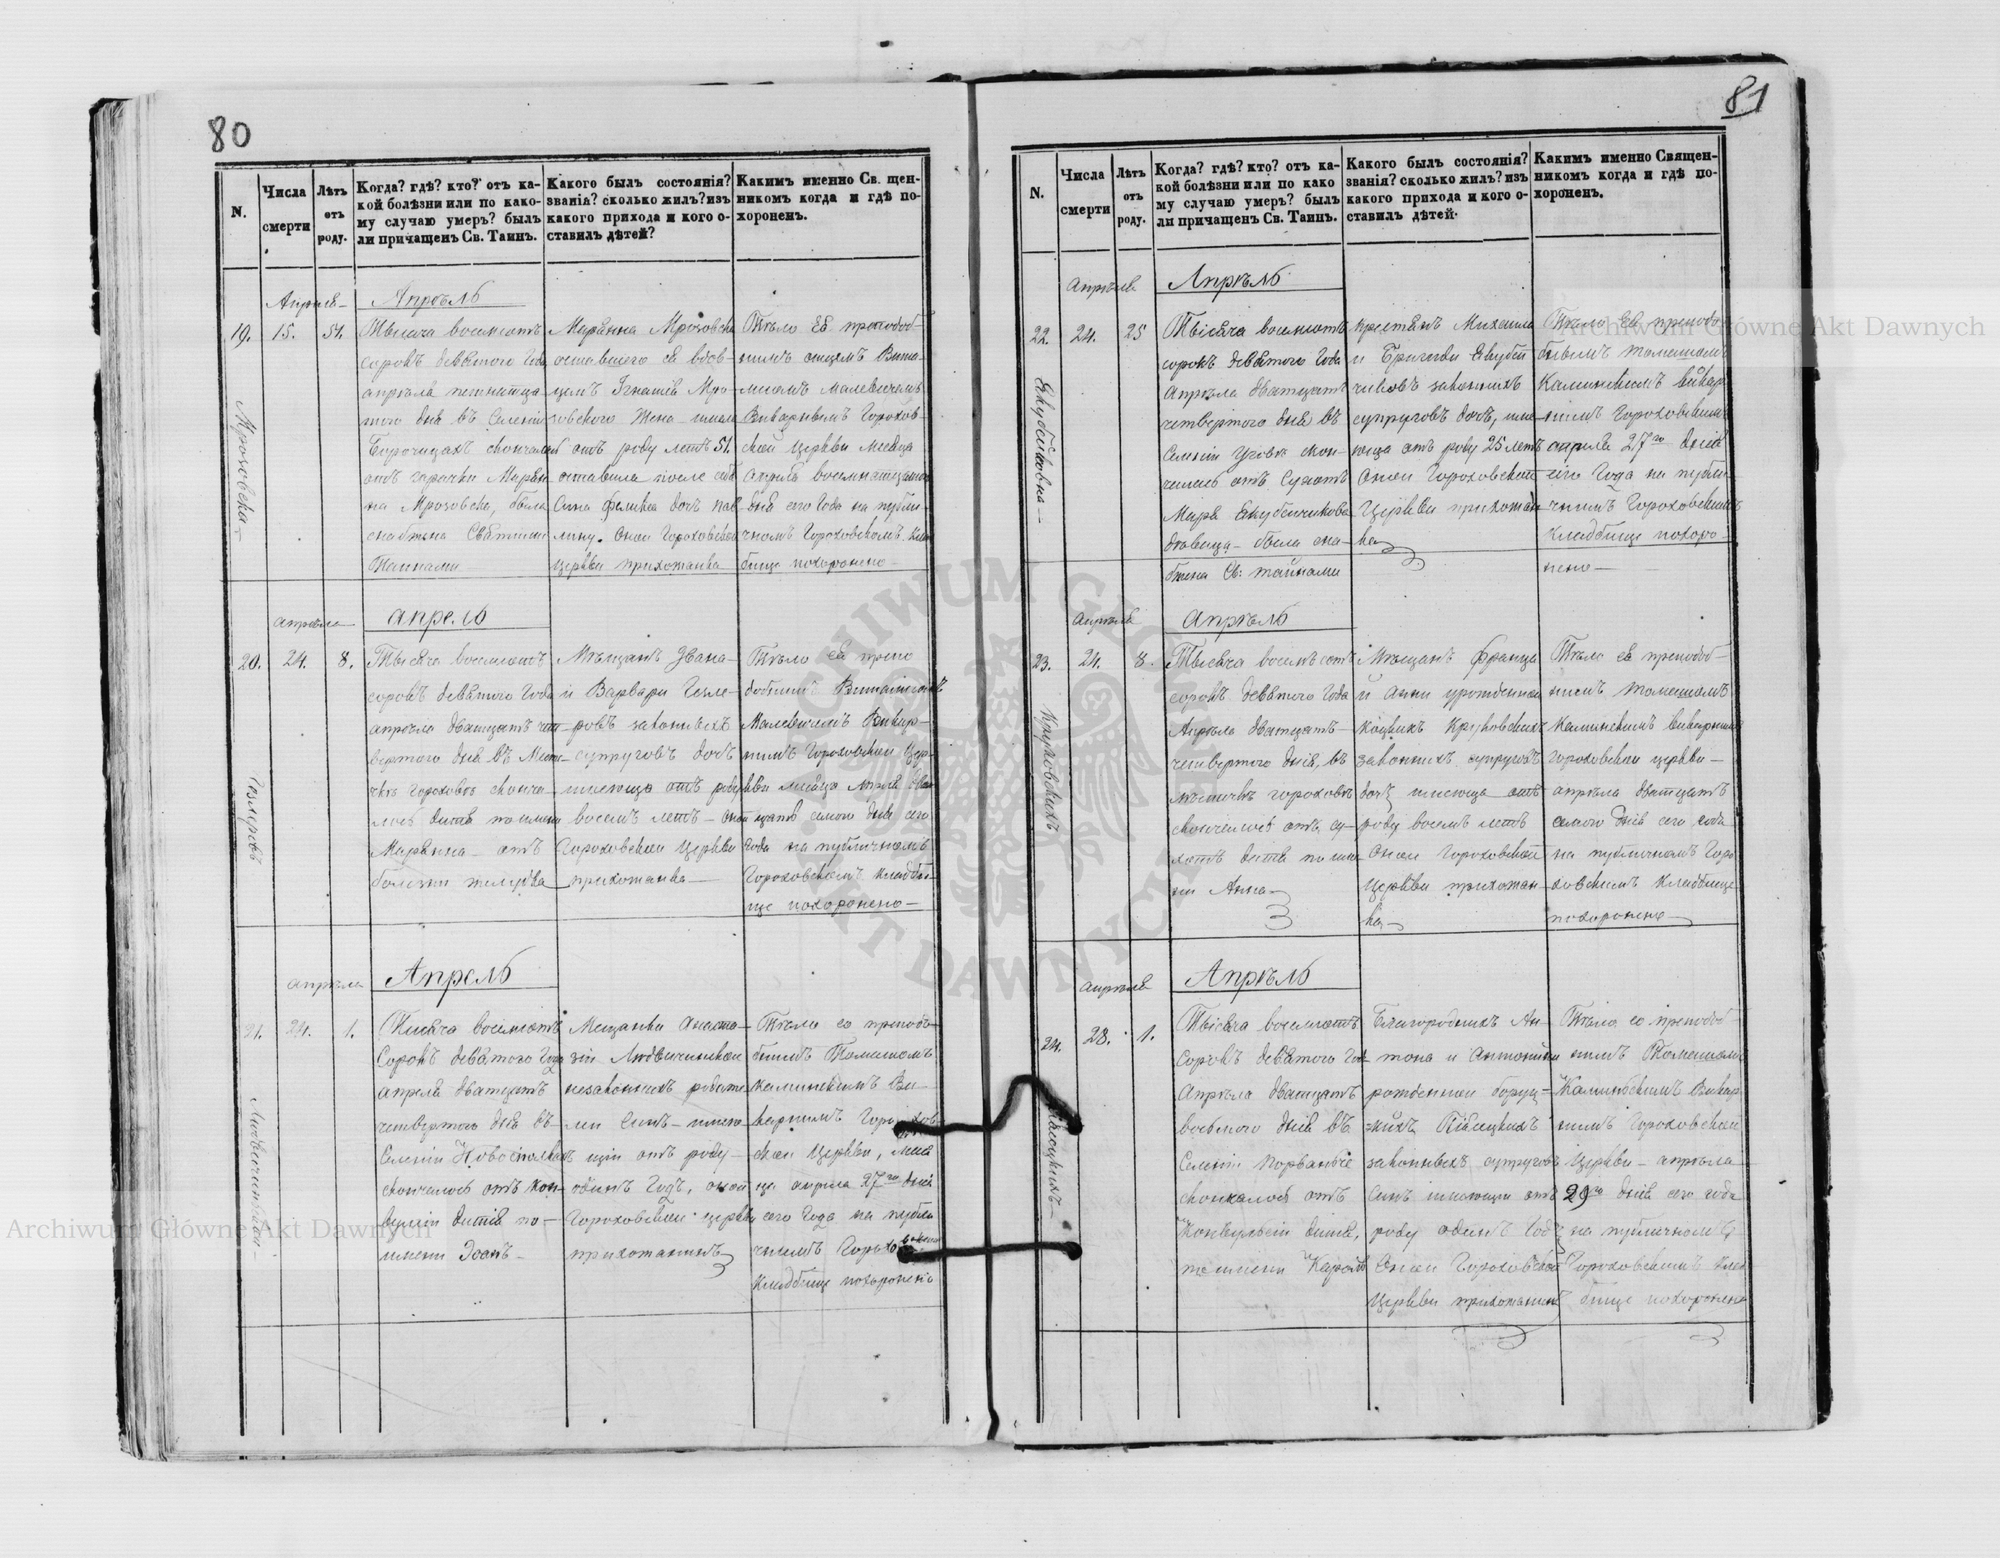 80
N.
Числа смерти
Лѣтъ отъ роду.
Когда? гдѣ? кто? отъ ка-
кой болѣзни или по како-
му случаю умеръ? былъ
ли причащенъ Св. Таинъ.
Какого былъ состоянія?
званія? сколько жилъ? изъ
какого прихода и кого о-
ставилъ дѣтей?
Какимъ именно Св. щен-
никомъ когда и гдѣ по-
хоронен.
Апрѣля
Апрѣль
19.
15.
51.
Мрозовска
Тысяча восемсотъ
сорокъ девятого года
апрѣля
того дня въ Селеніи
отъ горячки Марян
на Мрозовска, была
Святыми
Тайнами
Маріянна Мрозовска
цемъ Игнатія Мро-
зовского Жена
отъ роду летъ 51.
оставила после себя
Сина Феликса дочь Пав
лину. Онои Гороховской
Церкви прихожанка
Тѣло Ея преподоб-
нимъ отцемъ Вита-
лисомъ Малевичемъ
Викарнымъ Горохов-
ской Церкви Месяца
Апрѣля
дня сего Года на публи-
чномъ Гороховскомъ Клад
бище похоронено
апрѣля
апрель
20.
24.
8.
Гезлеровъ
Тысяча восемсотъ
сорокъ девятого Года
апрѣля двацать чет-
вертого дня въ Месте-
чкѣ Гороховѣ сконча-
лось дитя поимени
Маріянна отъ
болезни желудка
Мѣщанъ Ивана
и Варвари Гезле-
ровъ законныхъ
супруговъ дочь
имеюща отъ роду
восемъ летъ Онои
Гороховской Церкви
прихожанка
Тѣло ея препо
добнимъ
Малевичемъ Викар-
нимъ Гороховской Цер-
кви месяца Апреля два
цать семого дня сего
Года на публичномъ
Гороховскомъ кладби-
ще похоронено
апрѣля
Апрель
21.
24.
1.
Тисяча восемсотъ
Сорокъ девятого Года
апреля двацать
четвертого дня въ
Селеніи
скончалось отъ кон-
вулсіи дитя по-
имени Іоанъ
Мещанки
незаконнихъ родите
ли Синъ имею
щій отъ роду
одинъ Годъ, оной
Гороховской церкви
прихожанинъ
Тѣло его преподо-
бнимъ Томашомъ
Калинскимъ Ви-
карнимъ Горохов
ской Церкви, Меся
ца апреля 27го дня
сего Года на публи
чнимъ Горохо
Кладбище похоронено
81
N.
Числа смерти
Лѣтъ отъ роду.
Когда? гдѣ? кто? отъ ка-
кой болѣзни или по како
му случаю умеръ? былъ
ли причащенъ Св. Таинъ.
Какого былъ состоянія?
званія? сколько жилъ? изъ
какого прихода и кого о-
ставилъ дѣтей.
Какимъ именно Священ-
никомъ когда и гдѣ по-
хоронен.
апрѣля
Апрѣль
22.
24.
25
Тысяча восемсотъ
сорокъ девятого Года
Апрѣля двацать
четвертого дня въ
Селеніи
отъ Сухотъ
была сна
бжена Св: тайнами
Крестянъ Михаила
и Бригиди
законнихъ
супруговъ дочь, име
юща отъ роду 25 летъ
Онои Гороховской
Церкви прихожан
ка
Тѣло Ея преподо
бнымъ Томашомъ
Калинскимъ Викар
нимъ Гороховскимъ
апреля 27го дня
сего Года на публи
чнимъ Гороховскимъ
Кладбище похоро-
нено
апрѣля
Апрѣль
23.
24.
8.
Круковскихъ
Тысяча восемсотъ
сорокъ девятого Года
Апрѣля двацать
четвертого дня, въ
мѣстечкѣ гороховѣ
скончалось отъ су-
хотъ дитя по име
ни Анна
Мѣщанъ Франца
и Анни урожденнои
Круковскихъ
законнихъ супруговъ
дочь имеюща отъ
роду восемъ летъ
Онои Гороховской
Церкви прихожан
ка
Тѣло ея преподоб-
нимъ Томашомъ
Калинскимъ викарнимъ
Гороховской церкви
апрѣля двацать
семого дня сего года
на публичномъ Горо
ховскимъ Кладбище
похоронена
апрѣля
Апрѣль
24.
28.
1.
Тысяча восемсотъ
Сорокъ девятого Года
Апрѣля двацать
восьмого дня въ
Селеніи
скончалось отъ
Конвулсіи дитя,
по имени Кароль
Благородныхъ Ан-
тона и Антонины
рожденнои
законныхъ супруговъ
Синъ имеющи отъ
роду одинъ Годъ
Онои Гороховской
Церкви прихожанинъ
Тѣло его преподоб
нимъ Томашомъ
Калинскимъ Викар
нимъ Гороховской
Церкви апрѣля
29го дня сего года
на публичномъ
Гороховскимъ клад
бище похоронено
Archiwum Główne Akt Dawnych
Archiwum Główne Akt Dawnych
ARCHIWUM GŁÓWNE AKT DAWNYCH